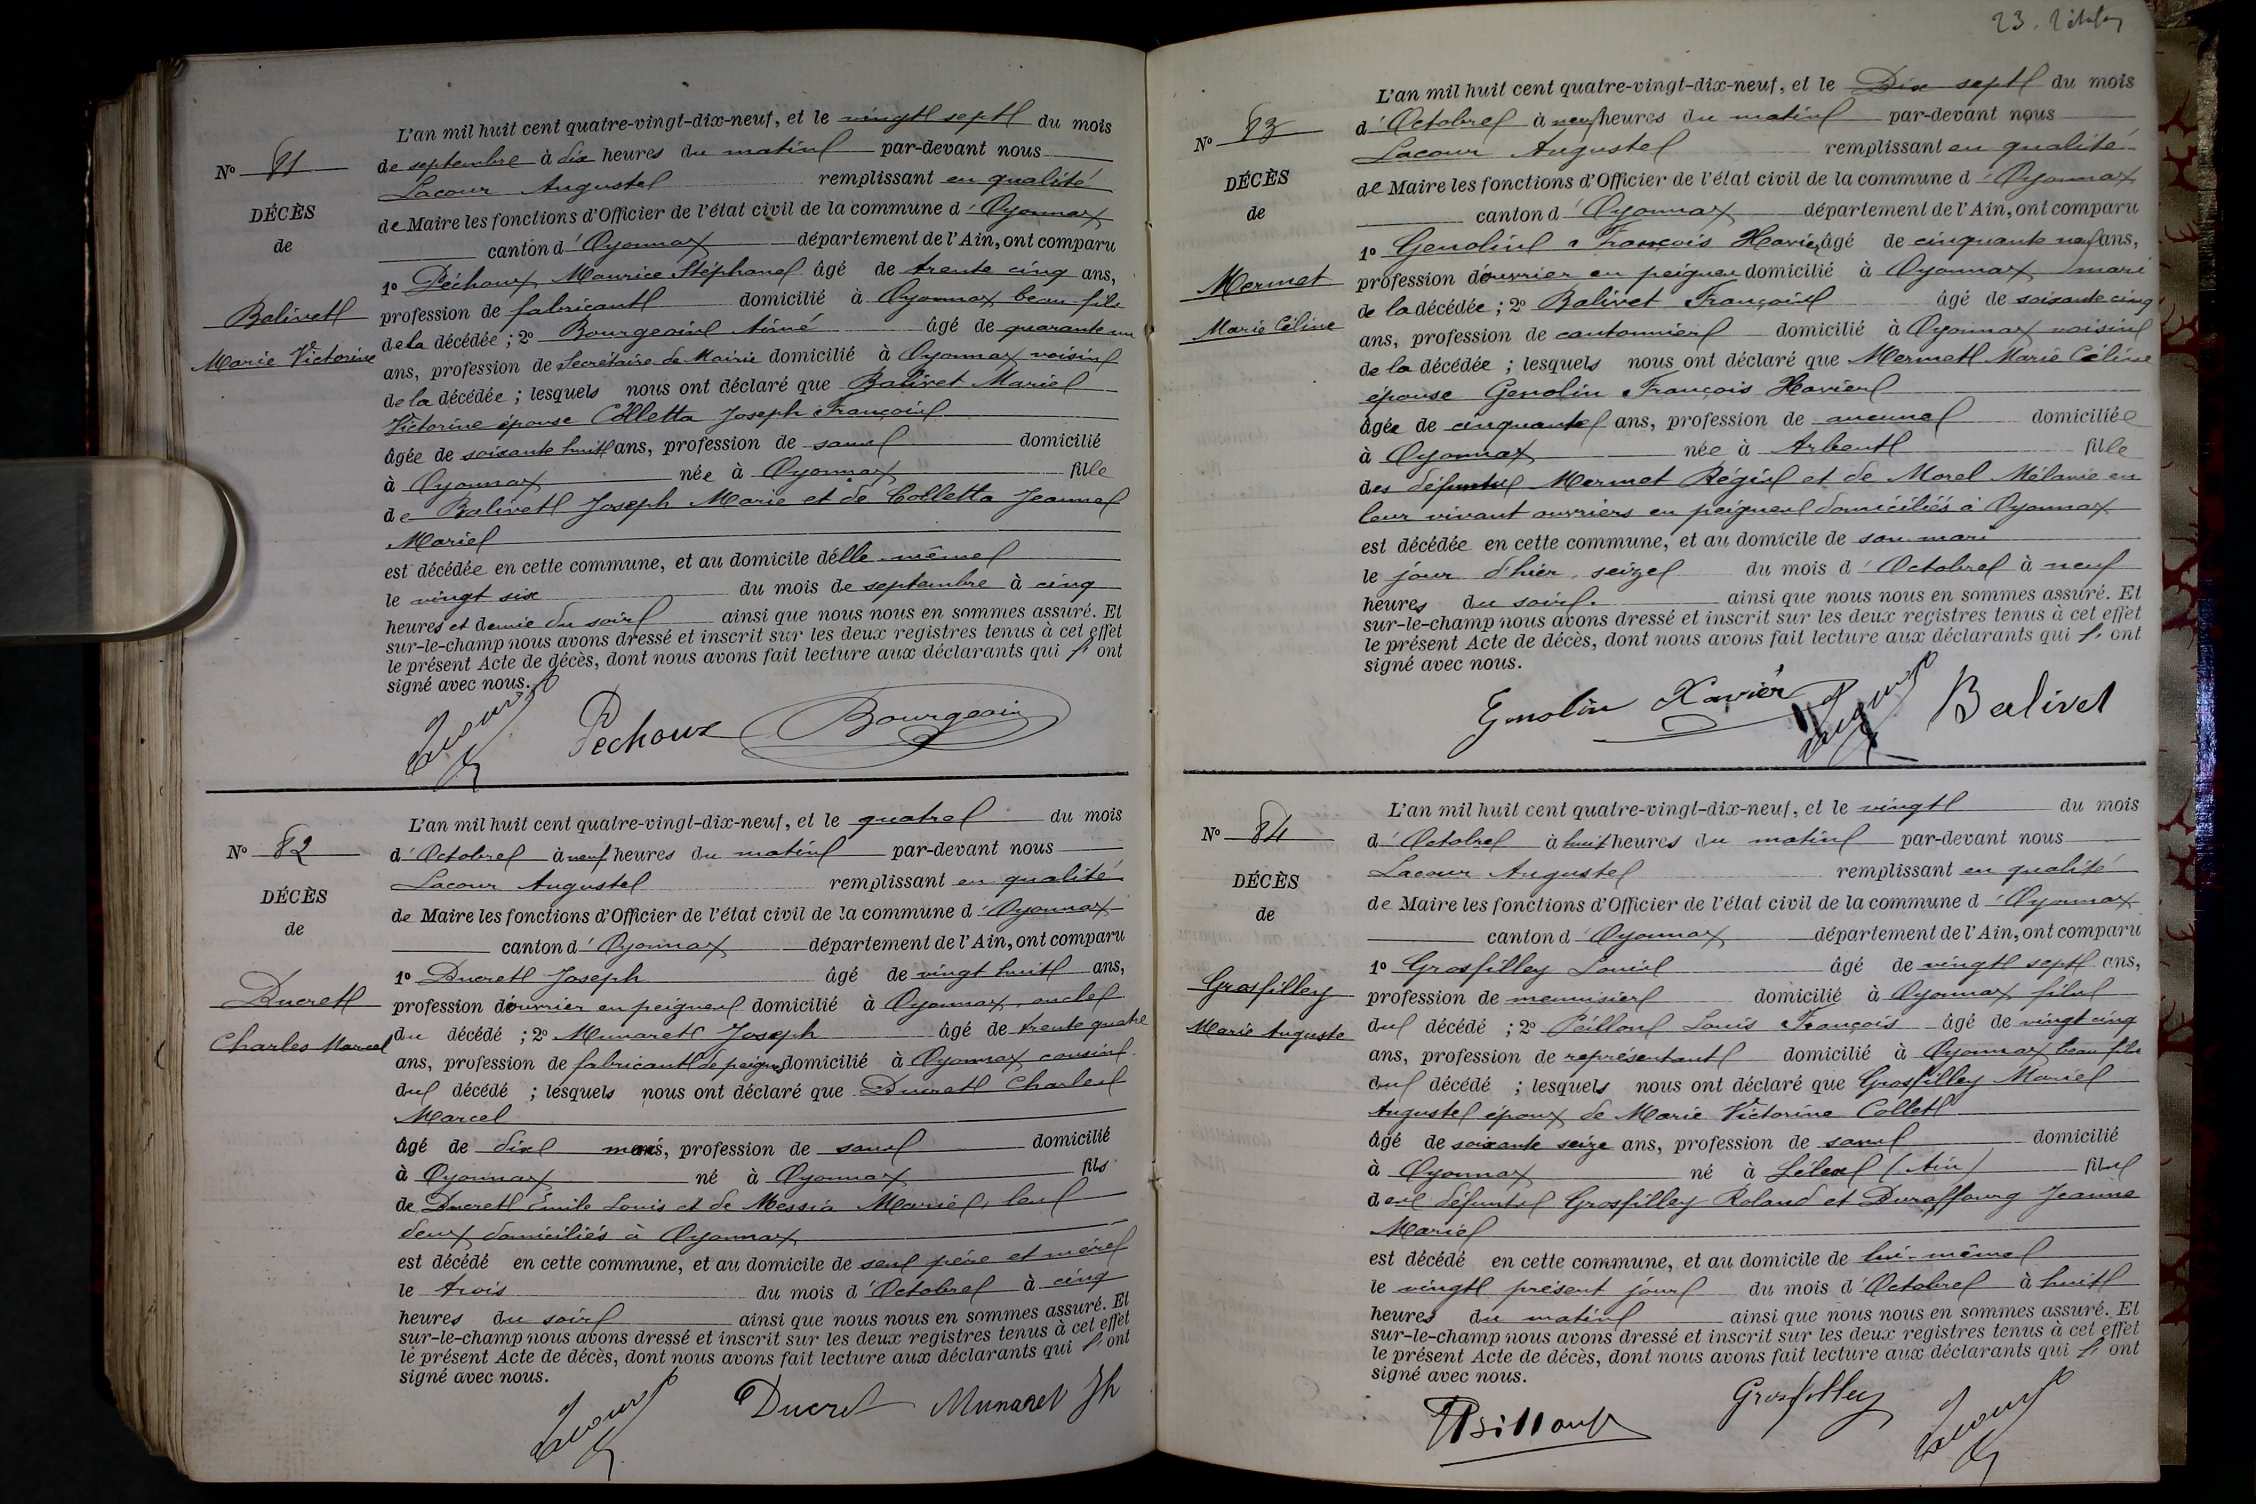 L'an mil huit cent quatre-vingt-dix-neuf, et le vingt sept du mois
No 81
de septembre à dix heures du matin par-devant nous
Lacour Auguste remplissant en qualité
DÉCÈS
de Maire les fonctions d'Officier de l'état civil de la commune d'Oyonnax
de
canton d'Oyonnax département de l'Ain, ont comparu
1o Péchoux Maurice Stéphane âgé de trente cinq ans,
Balivet
profession de fabricant domicilié à Oyonnax beau-fils
de la décédée ; 2o Bourgeois Aimé âgé de quarante un
Marie Victorine
ans, profession de Secrétaire de Mairie domicilié à Oyonnax voisin
de la décédée ; lesquels nous ont déclaré que Balivet Marie
Victorine épouse Colletta Joseph François
âgée de soixante huit ans, profession de sans domicilié
à Oyonnax née à Oyonnax fille
de Balivet Joseph Marie et de Colletta Jeanne
Marie
est décédée en cette commune, et au domicile d'elle-même
le vingt six du mois de septembre à cinq
heures et demie du soir ainsi que nous nous en sommes assuré. Et
sur-le-champ nous avons dressé et inscrit sur les deux registres tenus à cet effet
le présent Acte de décès, dont nous avons fait lecture aux déclarants qui l'ont
signé avec nous.
Lacour Péchoux Bourgeois
L'an mil huit cent quatre-vingt-dix-neuf, et le quatre du mois
No 82
d'Octobre à neuf heures du matin par-devant nous
Lacour Auguste remplissant en qualité
DÉCÈS
de Maire les fonctions d'Officier de l'état civil de la commune d'Oyonnax
de
canton d'Oyonnax département de l'Ain, ont comparu
1o Ducret Joseph âgé de vingt huit ans,
Ducret
profession d'ouvrier en peignes domicilié à Oyonnax, oncle
Charles Marcel
du décédé ; 2o Munaret Joseph âgé de trente quatre
ans, profession de fabricant de peignes domicilié à Oyonnax cousin
du décédé ; lesquels nous ont déclaré que Ducret Charles
Marcel
âgé de dix mois, profession de sans domicilié
à Oyonnax né à Oyonnax fils
de Ducret Émile Louis et de Messia Marie, tous
deux domiciliés à Oyonnax
est décédé en cette commune, et au domicile de ses père et mère
le trois du mois d'Octobre à cinq
heures du soir ainsi que nous nous en sommes assuré. Et
sur-le-champ nous avons dressé et inscrit sur les deux registres tenus à cet effet
le présent Acte de décès, dont nous avons fait lecture aux déclarants qui l'ont
signé avec nous.
Lacour Ducret Munaret Jh
23.
L'an mil huit cent quatre-vingt-dix-neuf, et le Dix sept du mois
No 83
d'Octobre à neuf heures du matin par-devant nous
Lacour Auguste remplissant en qualité
DÉCÈS
de Maire les fonctions d'Officier de l'état civil de la commune d'Oyonnax
de
canton d'Oyonnax département de l'Ain, ont comparu
1o Genolin François Xavier, âgé de cinquante neuf ans,
Mermet
profession d'ouvrier en peignes domicilié à Oyonnax mari
Marie Céline
de la décédée ; 2o Balivet François âgé de soixante cinq
ans, profession de cantonnier domicilié à Oyonnax voisin
de la décédée ; lesquels nous ont déclaré que Mermet Marie Céline
épouse Genolin François Xavier
âgée de cinquante ans, profession de aucune domiciliée
à Oyonnax née à Arbent fille
des défunts Mermet Régis et de Morel Mélanie en
leur vivant ouvriers en peignes domiciliés à Oyonnax
est décédée en cette commune, et au domicile de son mari
le jour d'hier, seize du mois d'Octobre à neuf
heures du soir. ainsi que nous nous en sommes assuré. Et
sur-le-champ nous avons dressé et inscrit sur les deux registres tenus à cet effet
le présent Acte de décès, dont nous avons fait lecture aux déclarants qui l'ont
signé avec nous.
Genolin Xavier Lacour Balivet
L'an mil huit cent quatre-vingt-dix-neuf, et le vingt du mois
No 84
d'Octobre à huit heures du matin par-devant nous
Lacour Auguste remplissant en qualité
DÉCÈS
de Maire les fonctions d'Officier de l'état civil de la commune d'Oyonnax
de
canton d'Oyonnax département de l'Ain, ont comparu
1o Grosfilley Louis âgé de vingt sept ans,
Grosfilley
profession de menuisier domicilié à Oyonnax fils
Marie Auguste
du décédé ; 2o Peillon Louis François âgé de vingt cinq
ans, profession de représentant domicilié à Oyonnax beau fils
du décédé ; lesquels nous ont déclaré que Grosfilley Marie
Auguste époux de Marie Victorine Collet
âgé de soixante seize ans, profession de sans domicilié
à Oyonnax né à Lélex (Ain) fils
des défunts Grosfilley Roland et Duraffourg Jeanne
Marie
est décédé en cette commune, et au domicile de lui-même
le vingt présent jour du mois d'Octobre à huit
heures du matin ainsi que nous nous en sommes assuré. Et
sur-le-champ nous avons dressé et inscrit sur les deux registres tenus à cet effet
le présent Acte de décès, dont nous avons fait lecture aux déclarants qui l'ont
signé avec nous.
Peillon Grosfilley Lacour